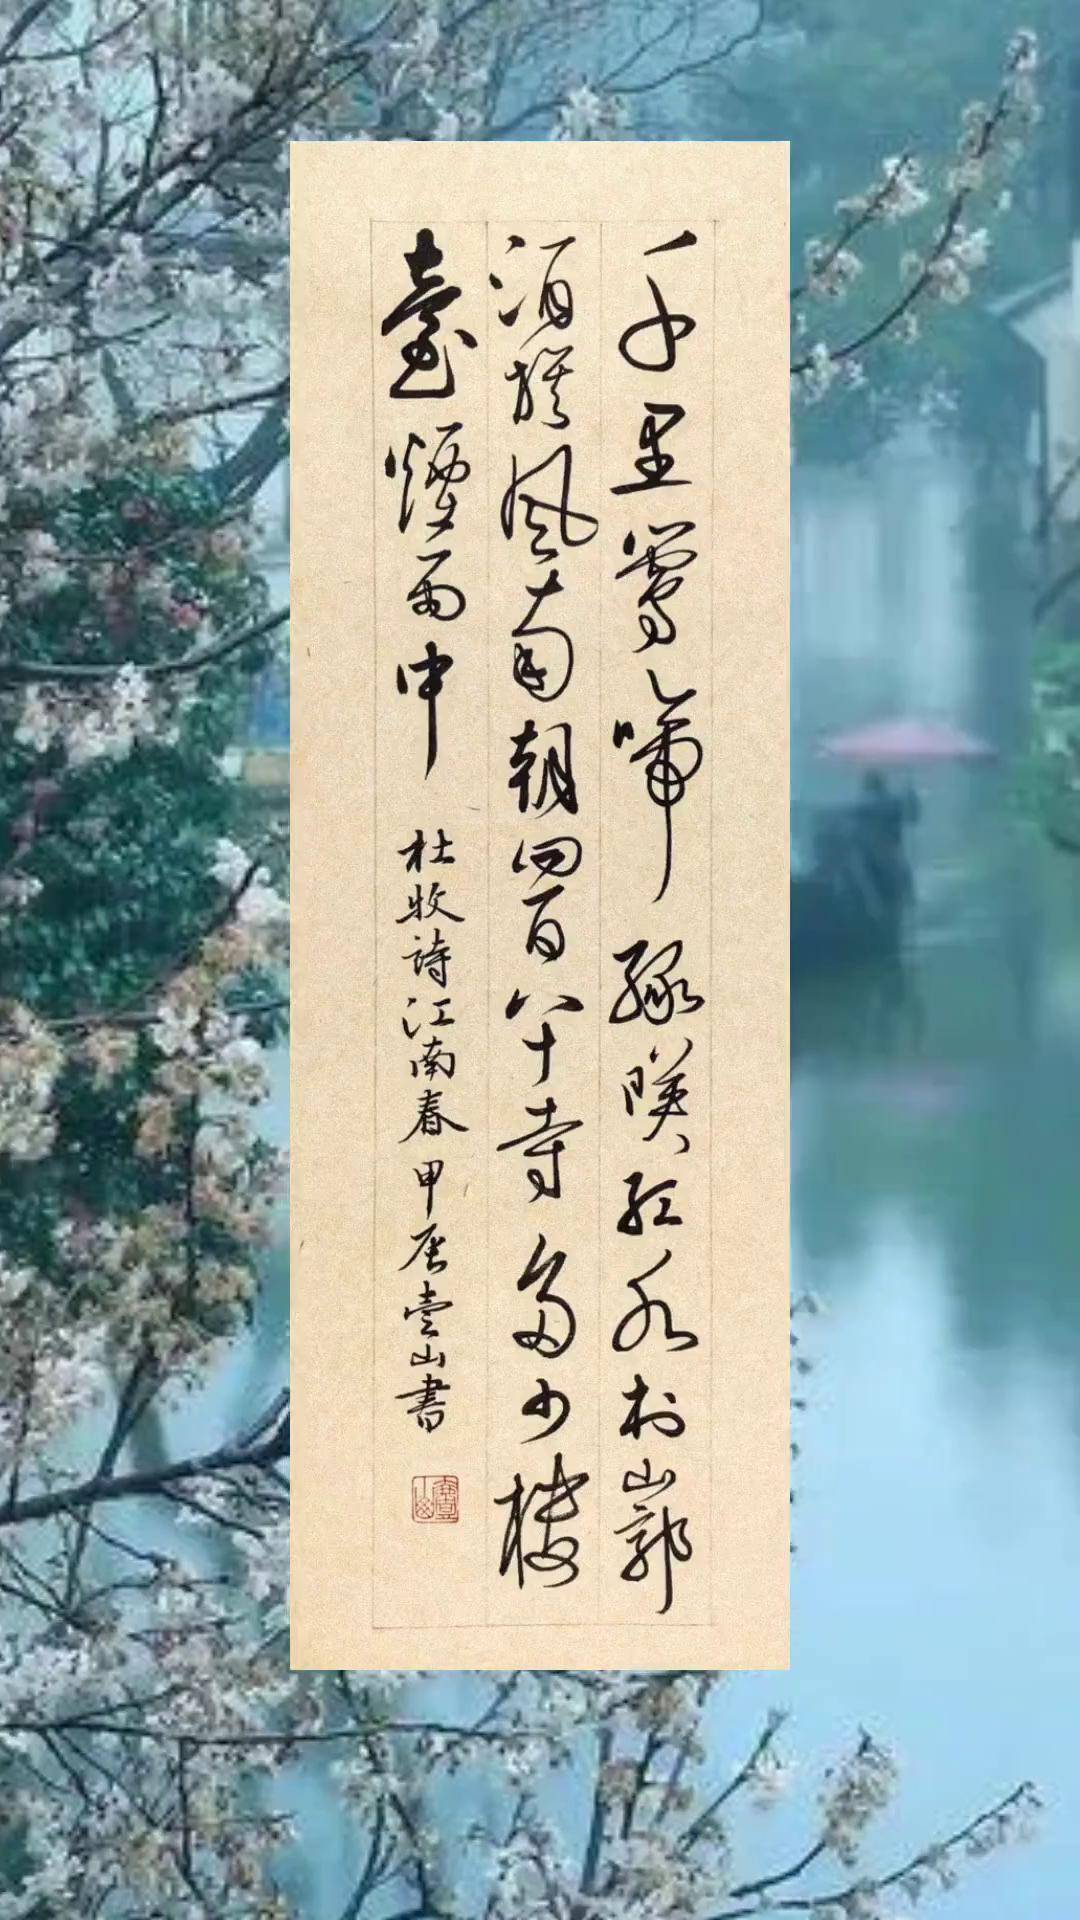 千里鶯啼緑暎紅水村山郭
酒旗風南朝四百八十寺多少樓
臺煙雨中
杜牧詩江南春甲辰壹山書